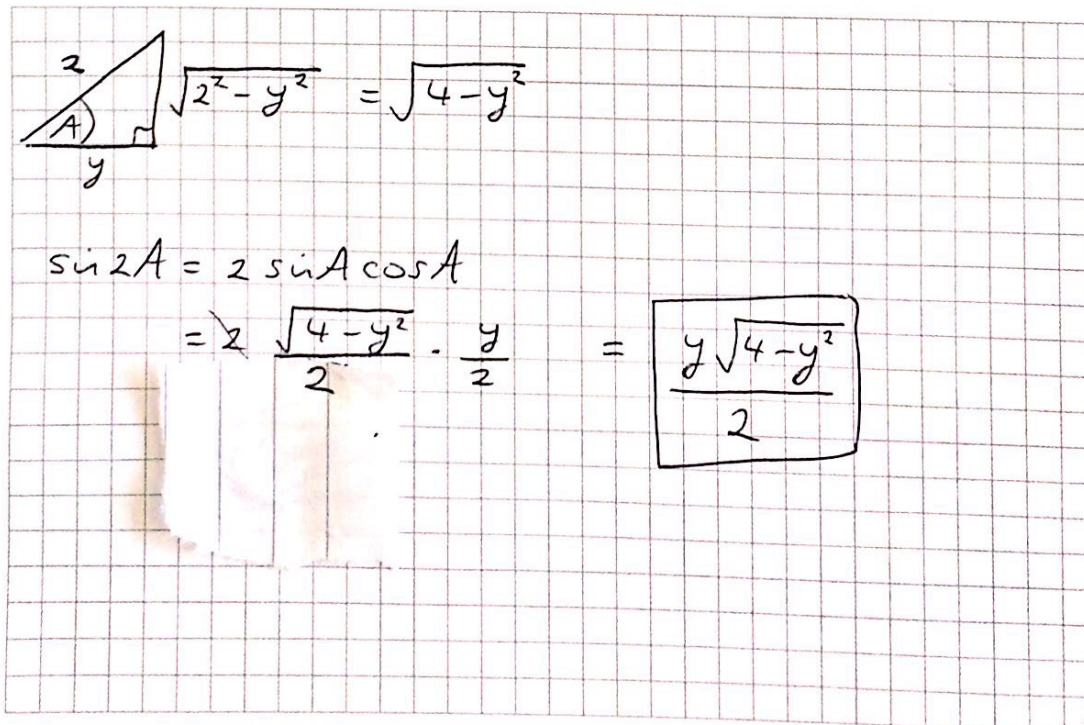 2 √(2² - y²) = √(4 - y²)
A
y
sin 2A = 2 sin A cos A
= 2 √(4 - y²)/2 · y/2 = y√(4 - y²)/2